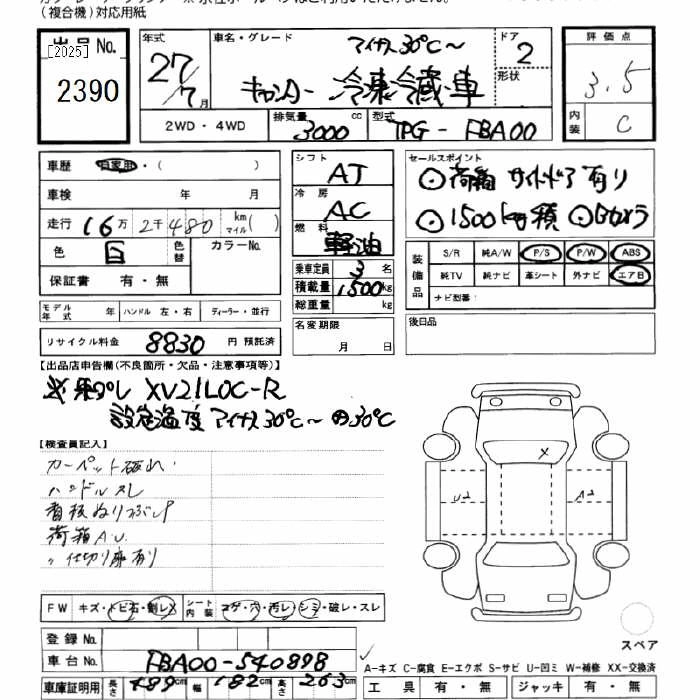 (複合機)対応用紙
出品 No.
[2025]
2390
年式
27/7月
車名・グレード
マイナス30℃～
キャンター 冷凍冷蔵車
ドア
2
形状
評価点
3.5
内装
C
2WD・4WD
排気量 3000 cc
型式 TPG - FBA00
車歴 自家用・( )
車検 年 月
走行 16万2千480 km マイル( )
色 白 色替 カラーNo.
保証書 有・無
シフト AT
冷房 AC
燃料 軽油
乗車定員 3 名
積載量 1500 kg
総重量 kg
セールスポイント
◎荷箱サイドドア有り
◎1500kg積 ◎Bカメラ
装備品
S/R 純A/W P/S P/W ABS
純TV 純ナビ 革シート 外ナビ エアB
ナビ型番:
モデル年式 年 ハンドル 左・右 ディーラー・並行
リサイクル料金 8830 円 預託済
名変期限
月 日
後日品
【出品店申告欄(不良箇所・欠品・注意事項等)】
XV21LOC-R
設定温度マイナス30℃～の30℃
【検査員記入】
カーペット破れ
ハンドルスレ
看板ぬりつぶし
荷箱A.U.
〃 仕切り扉有り
X
U2
A2
FW キズ・トビ石・割レX シート内装 コゲ・穴・汚レ・シミ・破レ・スレ
スペア
登録 No.
車台 No. FBA00-540898
車庫証明用 長さ 489cm 幅 182cm 高さ 263cm
A-キズ C-腐食 E-エクボ S-サビ U-凹ミ W-補修 XX-交換済
工具 有・無 ジャッキ 有・無